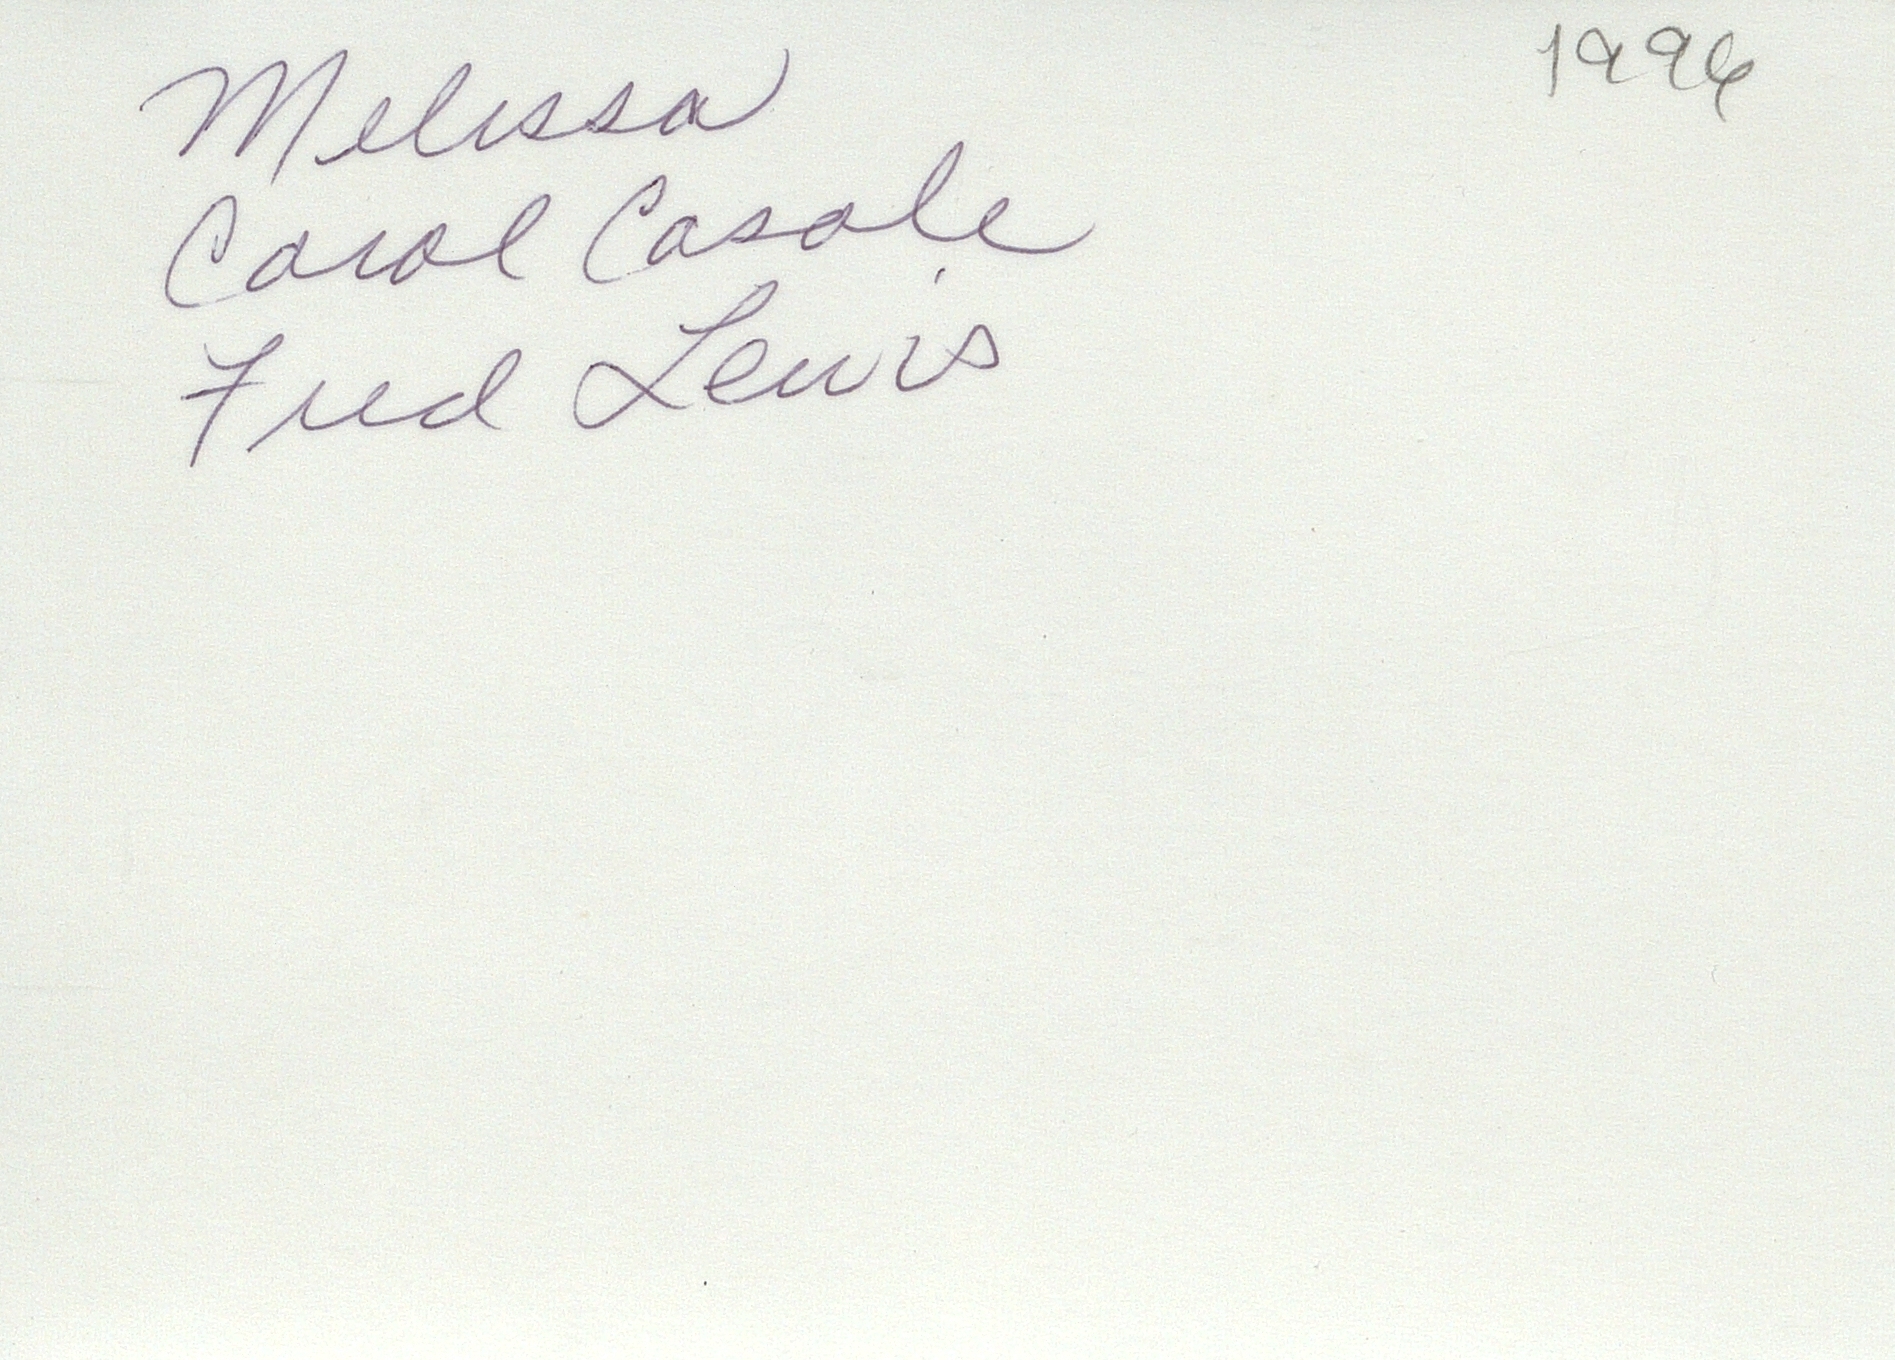 1996
Melissa
Carol Casole
Fred Lewis